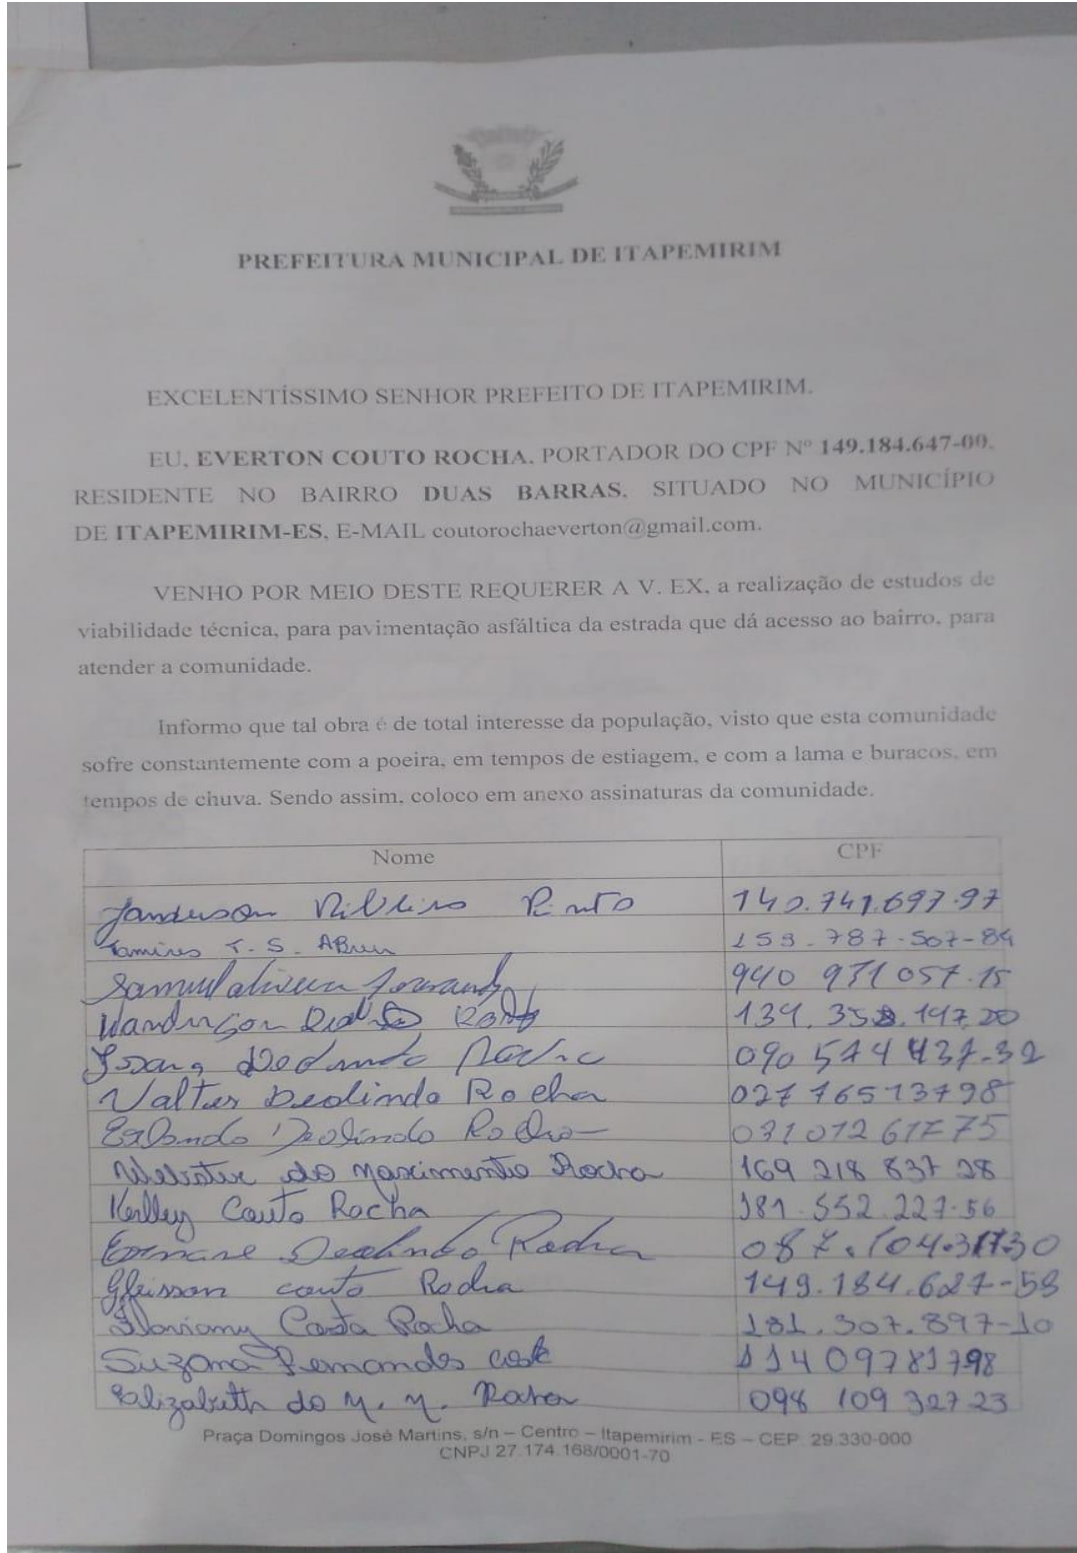 PREFEITURA MUNICIPAL DE ITAPEMIRIM
EXCELENTÍSSIMO SENHOR PREFEITO DE ITAPEMIRIM.
EU, EVERTON COUTO ROCHA, PORTADOR DO CPF Nº 149.184.647-00,
RESIDENTE NO BAIRRO DUAS BARRAS, SITUADO NO MUNICÍPIO
DE ITAPEMIRIM-ES, E-MAIL coutorochaeverton@gmail.com.
VENHO POR MEIO DESTE REQUERER A V. EX. a realização de estudos de
viabilidade técnica, para pavimentação asfáltica da estrada que dá acesso ao bairro, para
atender a comunidade.
Informo que tal obra é de total interesse da população, visto que esta comunidade
sofre constantemente com a poeira, em tempos de estiagem, e com a lama e buracos, em
tempos de chuva. Sendo assim, coloco em anexo assinaturas da comunidade.
Nome CPF
Janderson Ribeiro Pinto 140.741.697-97
Tamires T. S. Abreu 159.787.507-84
Samuel oliveira 940 931 057.15
Rocha
Deolindo Rocha 090 544 437-32
Valter Deolindo Rocha 027 76513798
Deolindo Rocha 031 012 617 75
do Nascimento Rocha 169 218 837 28
Kerlley Couto Rocha 181.552.227-56
Deolindo Rocha
Gleisson couto Rocha 149.184.627-58
Costa Rocha 181.307.897-10
Suzana Fernandes 114 097817 98
Elizabeth do N. M. Rocha 098 109 327 23
Praça Domingos José Martins, s/n – Centro – Itapemirim - ES – CEP: 29.330-000
CNPJ 27.174.168/0001-70